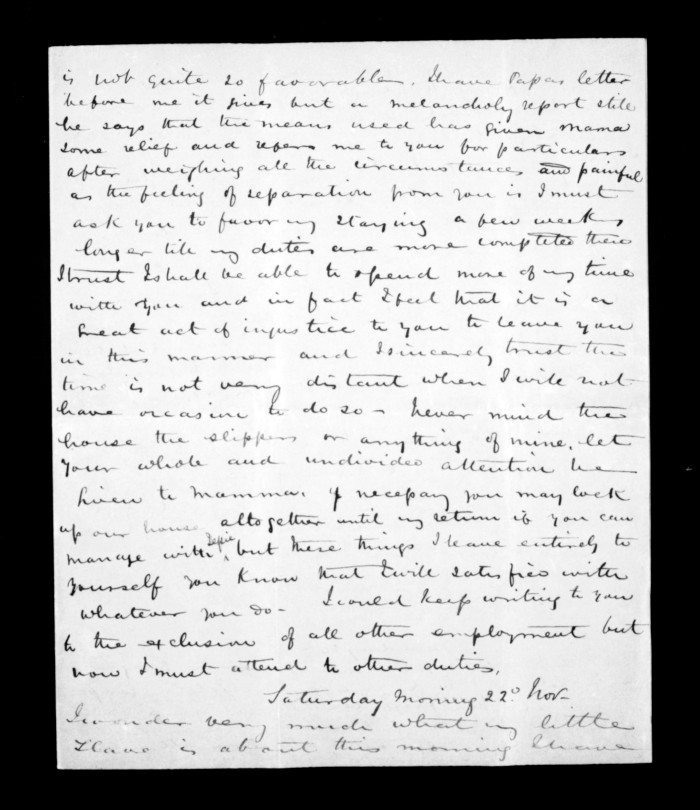 is not quite so favorable. I have Papas letter
before me it gives but a melancholy report still
he says that the means used has given Mama
some relief and refers me to you for particulars
after weighing all the circumstances and painful
as the feeling of separation from you is I must
ask you to favor my staying a few weeks
longer till my duties are more completed then
I trust I shall be able to spend more of my time
with you and in fact I feel that it is a
great act of injustice to you to leave you
in this manner and I sincerely trust the
time is not very distant when I will not
have occasion to do so - Never mind the
house the slippers or anything of mine. let
your whole and undivided attention be
given to Mamma. if necessary you may lock
up our house altogether until my return if you can
manage with but these things I leave entirely to
yourself you know that I will satisfied with
whatever you do - I could keep writing to you
to the exclusion of all other employment but
now I must attend to other duties.
Saturday Morning 22d Nov-
I wonder very much what my little
is about this morning I have